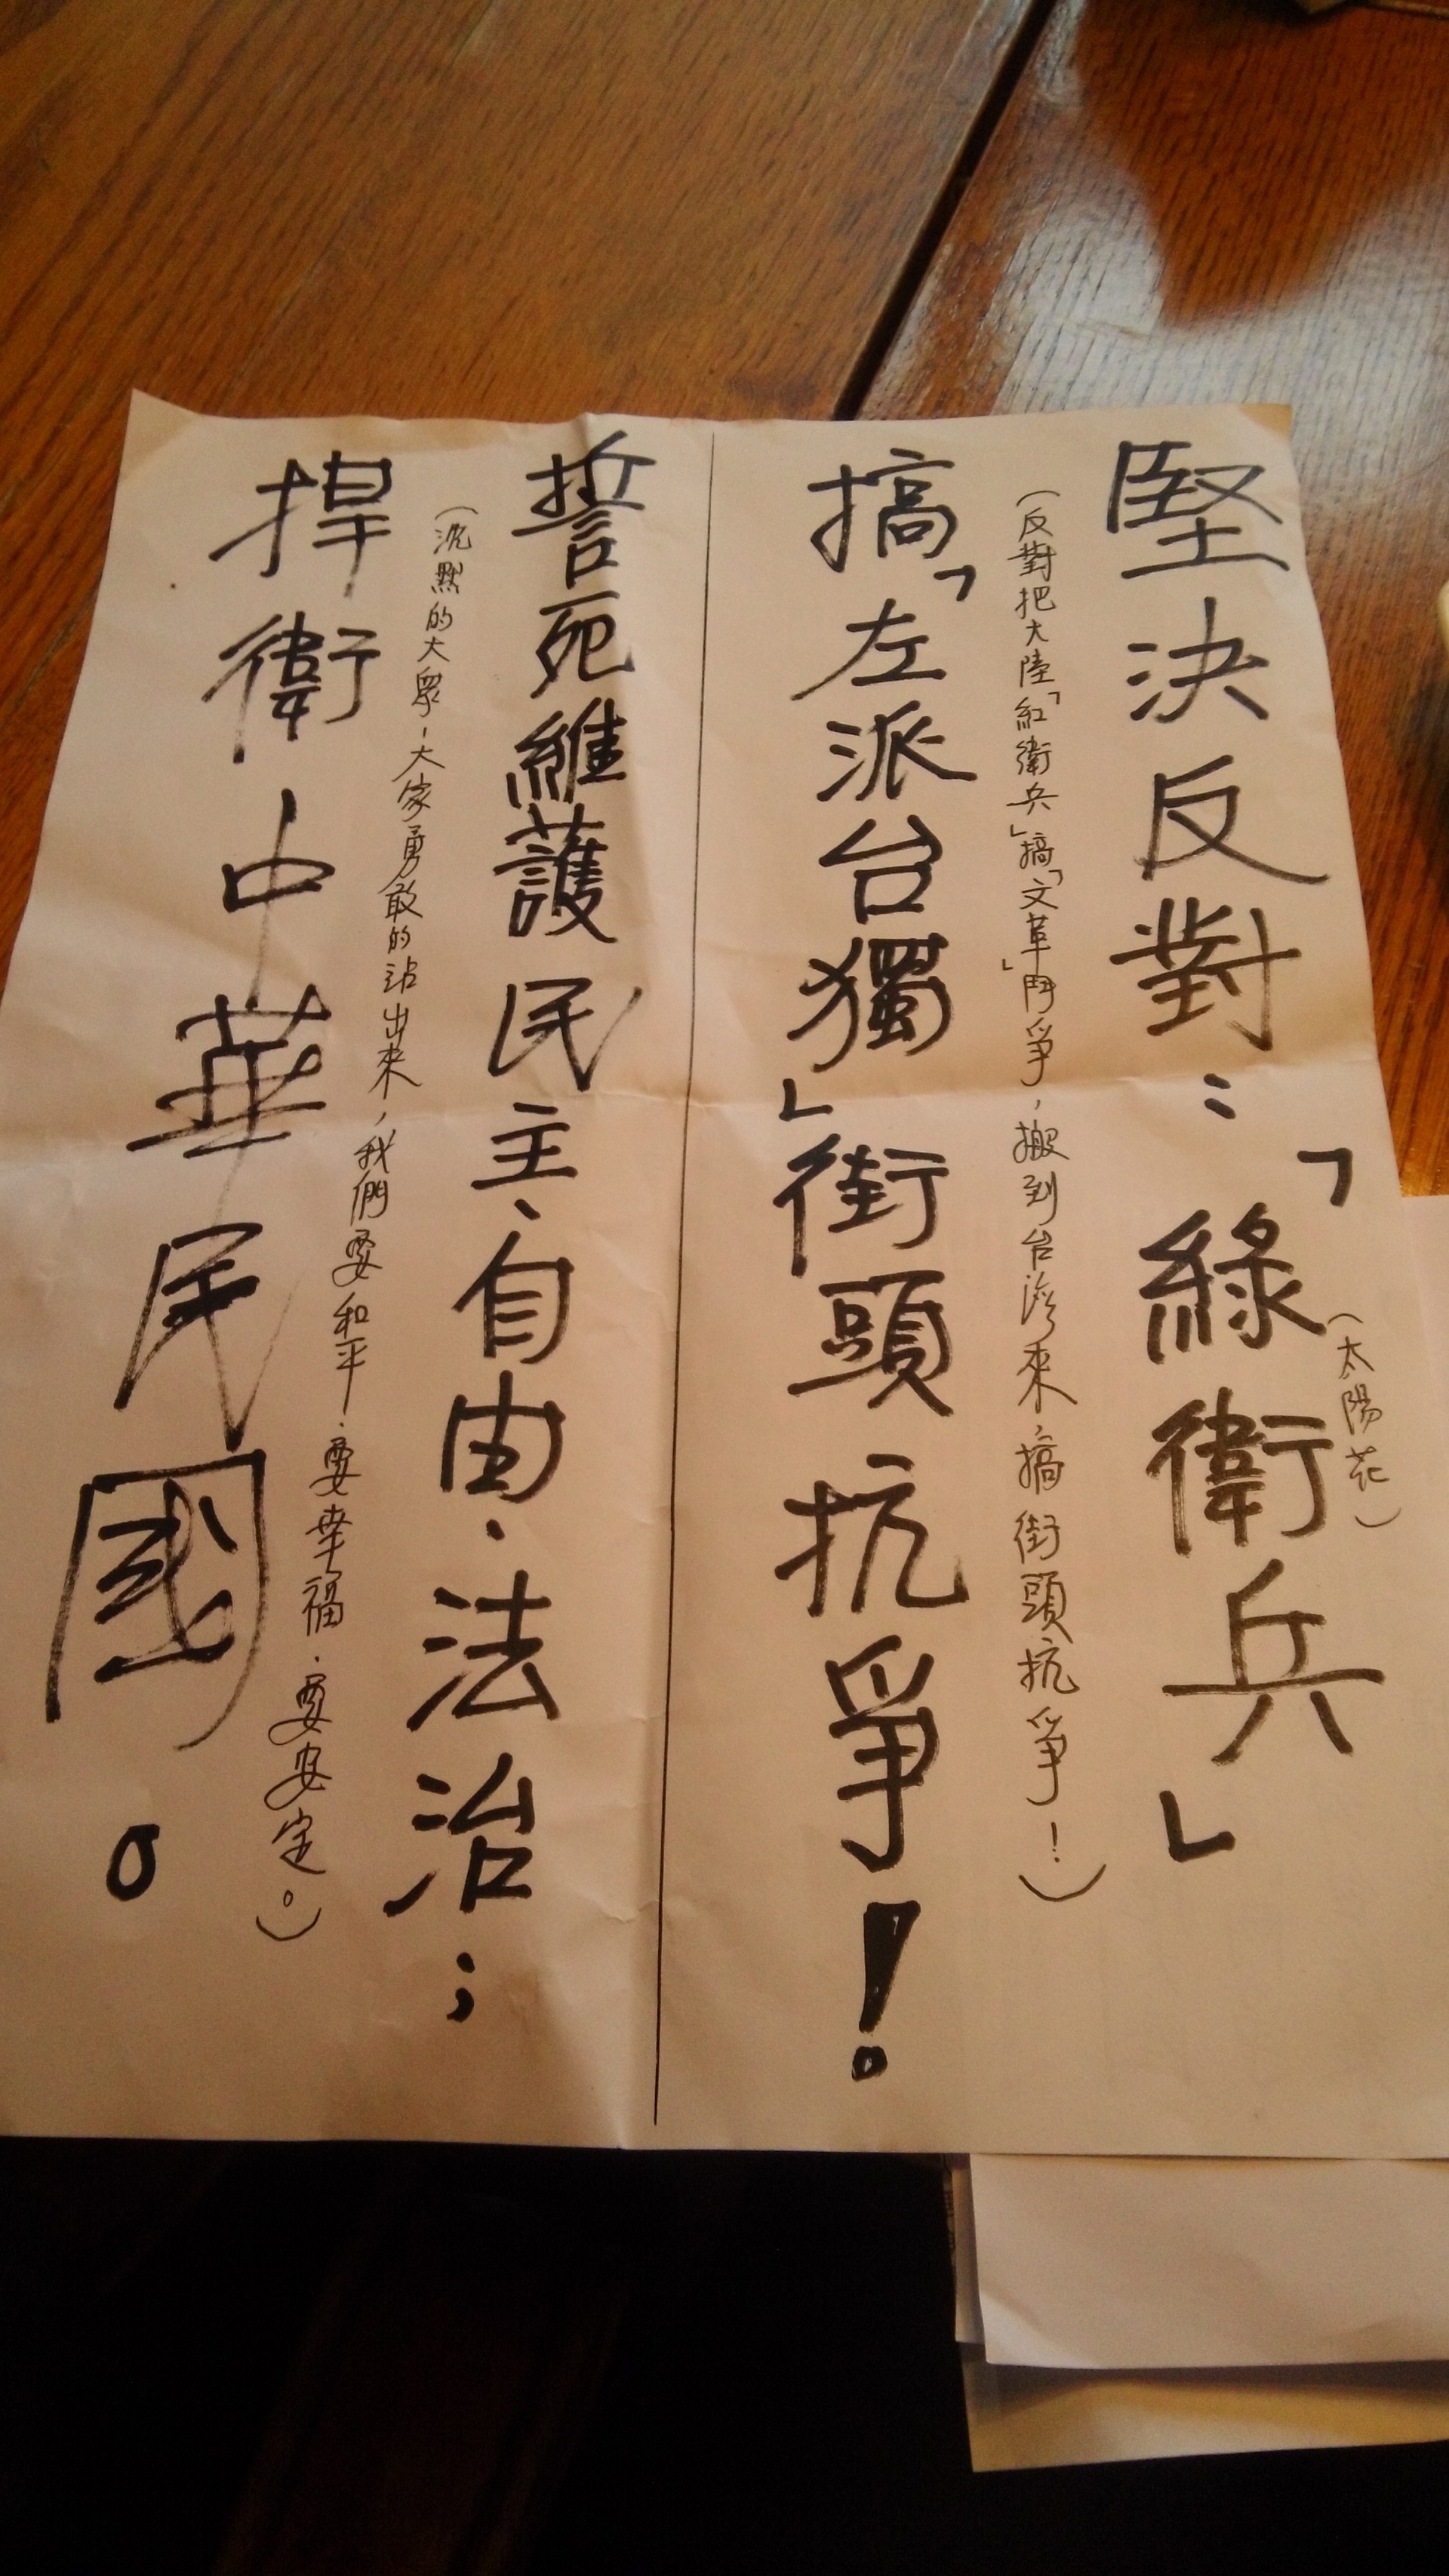 堅決反對：「綠衛兵」
（太陽花）
（反對把大陸「紅衛兵」搞「文革」鬥爭，搬到台灣來，搞街頭抗爭！）
搞「左派台獨」街頭抗爭！
誓死維護民主、自由、法治；
（沉默的大眾、大家勇敢的站出來，我們要和平、要幸福、要安定。）
捍衛中華民國。